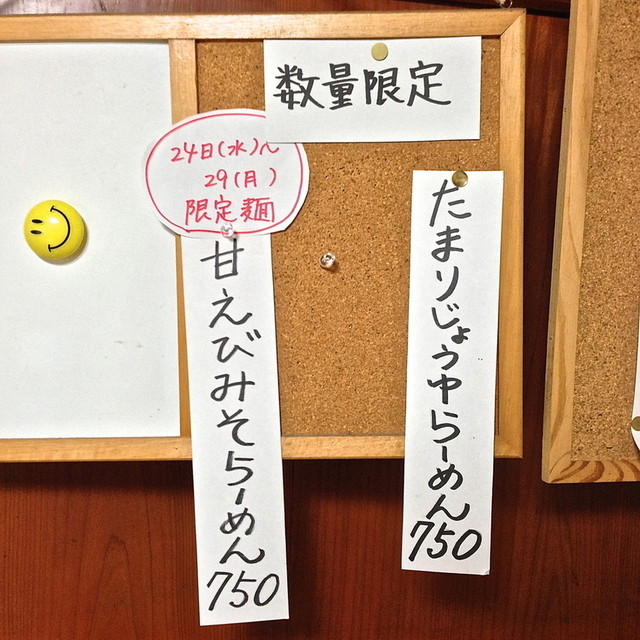 数量限定
24日(水)〜
29(月)
限定麺
たまりじょうゆらーめん
750
甘えびみそらーめん
750